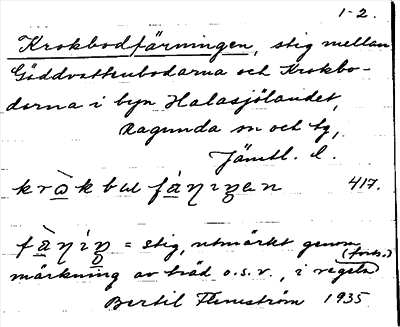 1-2.
Krokbodfärningen, stig mellan
Göddvattenbodarna och Krokbo-
darna i byn Halasjölandet,
Ragunda sn och tg,
Jämtl. l.
417.
= stig, utmärkt genom
(forts.)
märkning av träd o.s.v., i regeln
Bertil Flemström 1935